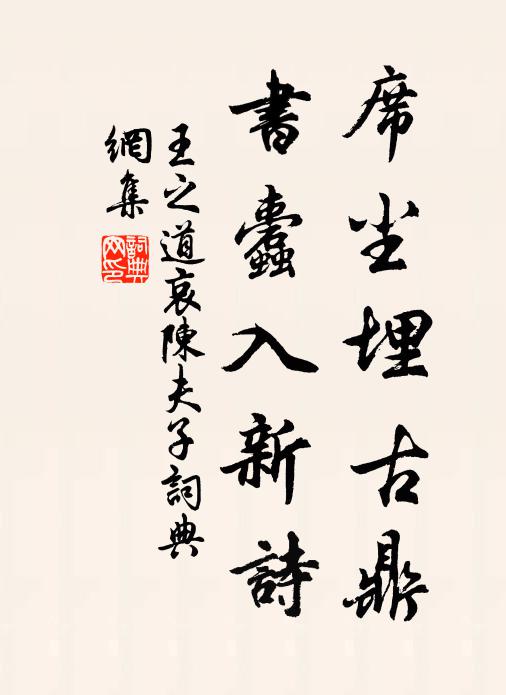 席尘埋古鼎
書蠹入新詩
王之道哀陳夫子詞典
網集
詞典網印